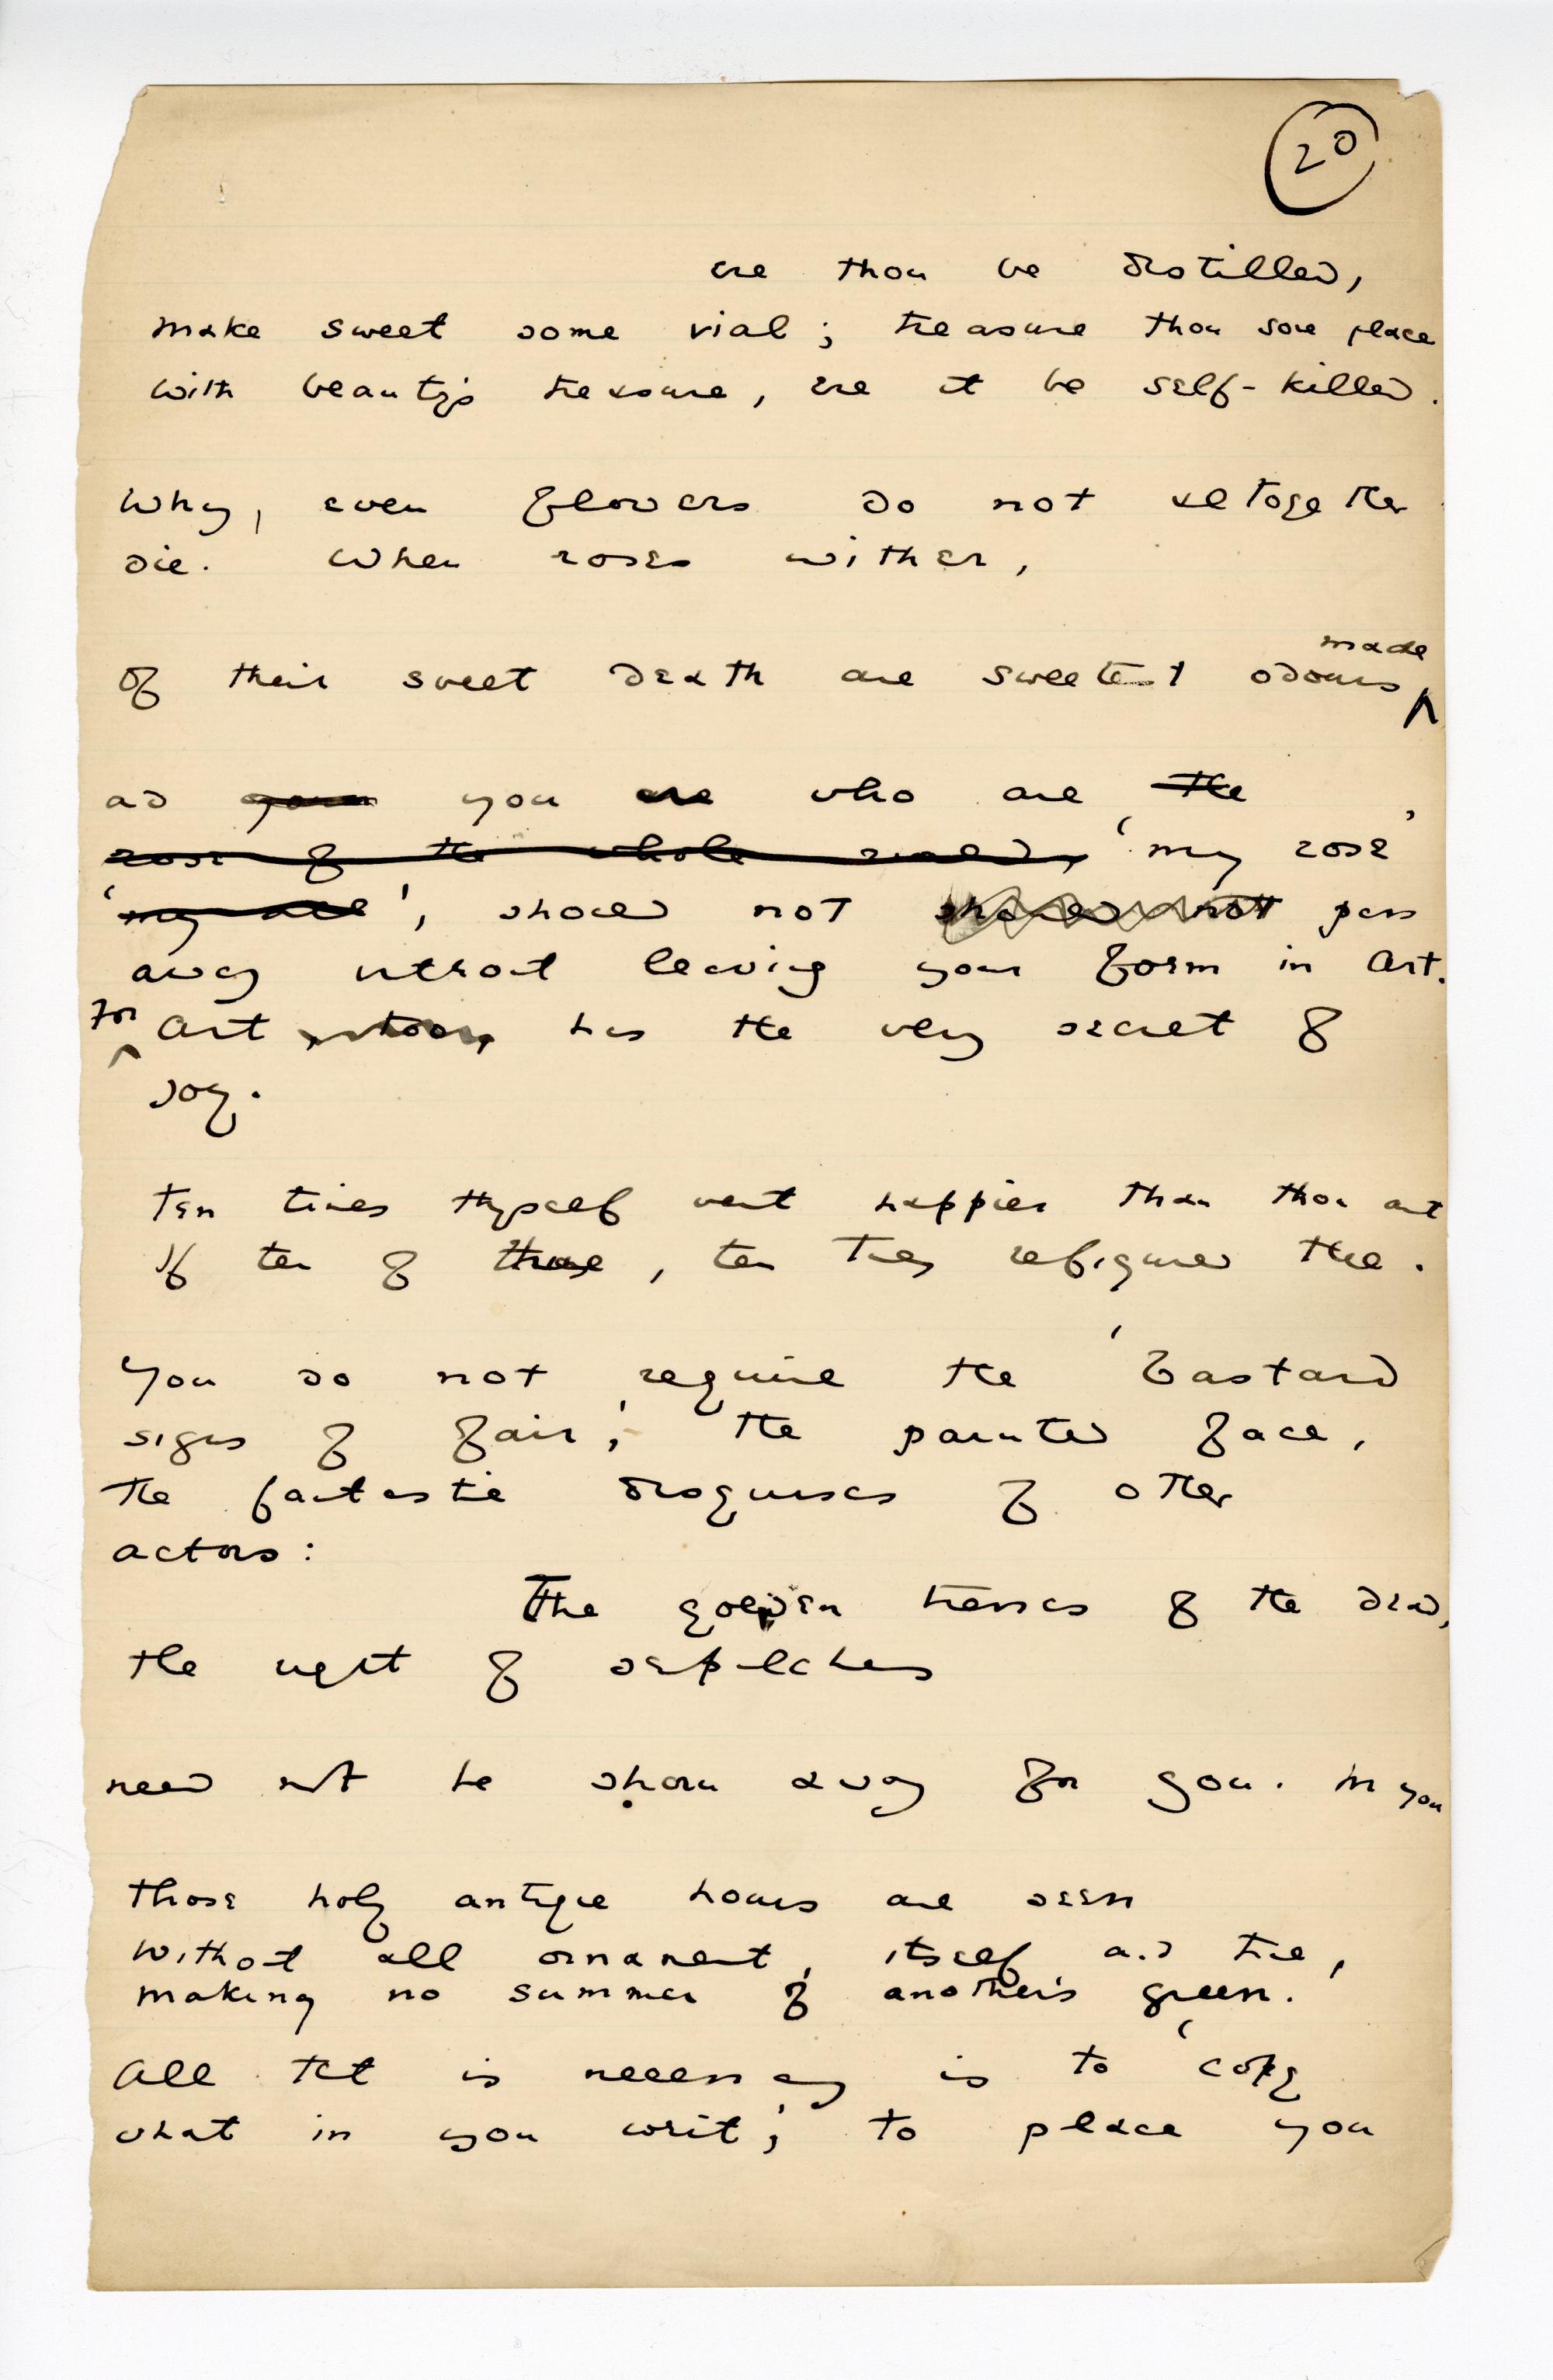 20
ere thou be distilled,
make sweet some vial; treasure thou some place
with beauty's treasure, ere it be self-killed.
Why, even flowers do not altogether
die. When roses wither,
made
Of their sweet death are sweetest odours
and you are who are the
rose of the whole world, 'my rose'
'my rose', should not should not pass
away without leaving your form in Art.
For Art has the very secret of
joy.
Ten times thyself were happier than thou art
If ten of thine, ten times refigured thee.
You do not require the 'bastard
signs of fair,' the painted face,
the fantastic disguises of other
actors:
The golden tresses of the dead,
the right of sepulchres
need not be shorn away for you. In you
those holy antique hours are seen
without all ornament, itself and true,
making no summer of another's green.
All that is necessary is to 'copy
what in you writ;' to place you